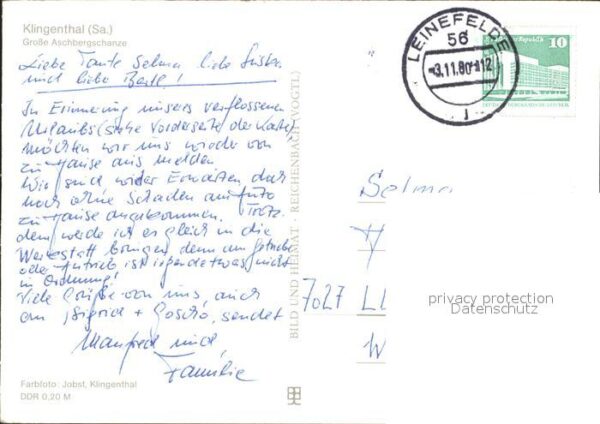 Klingenthal (Sa.)
Große Aschbergschanze
Liebe Tante Selma, liebe
und liebe Bertl!
In Erinnerung unseres verflossenen
Urlaubs (siehe Vorderseite der Karte)
möchten wir uns wieder von
zu Hause aus melden
Wir sind wider Erwarten doch
noch ohne Schaden am Auto
zu Hause angekommen. Trotz
dem werde ich es gleich in die
Werkstatt bringen denn am Getriebe
oder Antrieb ist irgendetwas nicht
in Ordnung!
Viele Grüße von uns, auch
an Sigrid + sendet
Manfred und
Familie
Farbfoto: Jobst, Klingenthal
DDR 0,20 M
BILD UND HEIMAT · REICHENBACH (VOGTL)
LEINEFELDE
56
-3.11.80-112
10
Selma
7027 L
W
privacy protection
Datenschutz